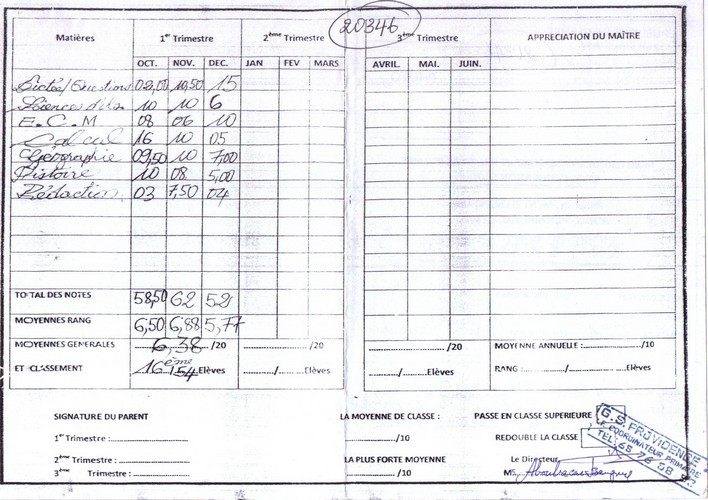 20346
Matières 1er Trimestre 2ème Trimestre 3ème Trimestre APPRECIATION DU MAÎTRE
OCT. NOV. DEC. JAN FEV MARS AVRIL. MAI. JUIN.
Dictée/Questions 02,00 10,50 15
Sciences 10 10 6
E.C.M 08 06 10
Calcul 16 10 05
Géographie 09,50 10 7,00
Histoire 10 08 5,00
Rédaction 03 7,50 04
TOTAL DES NOTES 58,50 62 52
MOYENNES RANG 6,50 6,88 5,77
MOYENNES GENERALES 6,38 /20 /20 /20 MOYENNE ANNUELLE : /10
ET CLASSEMENT 16ème /54 Elèves / Elèves / Elèves RANG : / Elèves
SIGNATURE DU PARENT LA MOYENNE DE CLASSE : PASSE EN CLASSE SUPERIEURE
1er Trimestre : /10 REDOUBLE LA CLASSE
G.S. PROVIDENCE
LE COORDINATEUR PRIMAIRE
TEL: 65 76 58
2ème Trimestre : LA PLUS FORTE MOYENNE Le Directeur
3ème Trimestre : /10